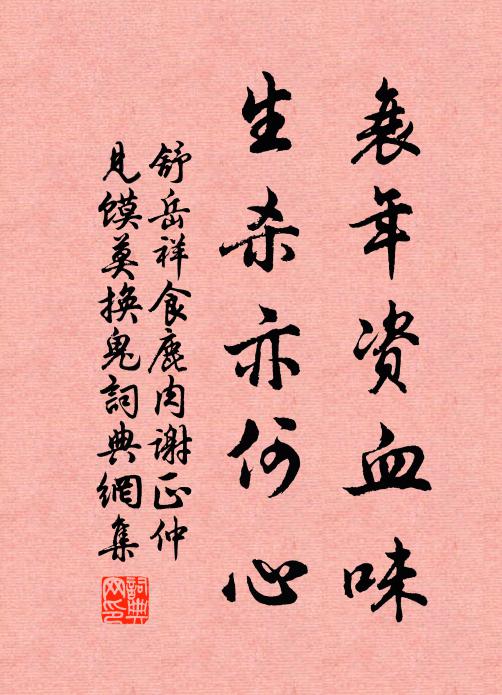 衰年资血味
生杀亦何心
舒岳祥食鹿肉谢正仲
见馍莫换鬼詞典網集
詞典网印